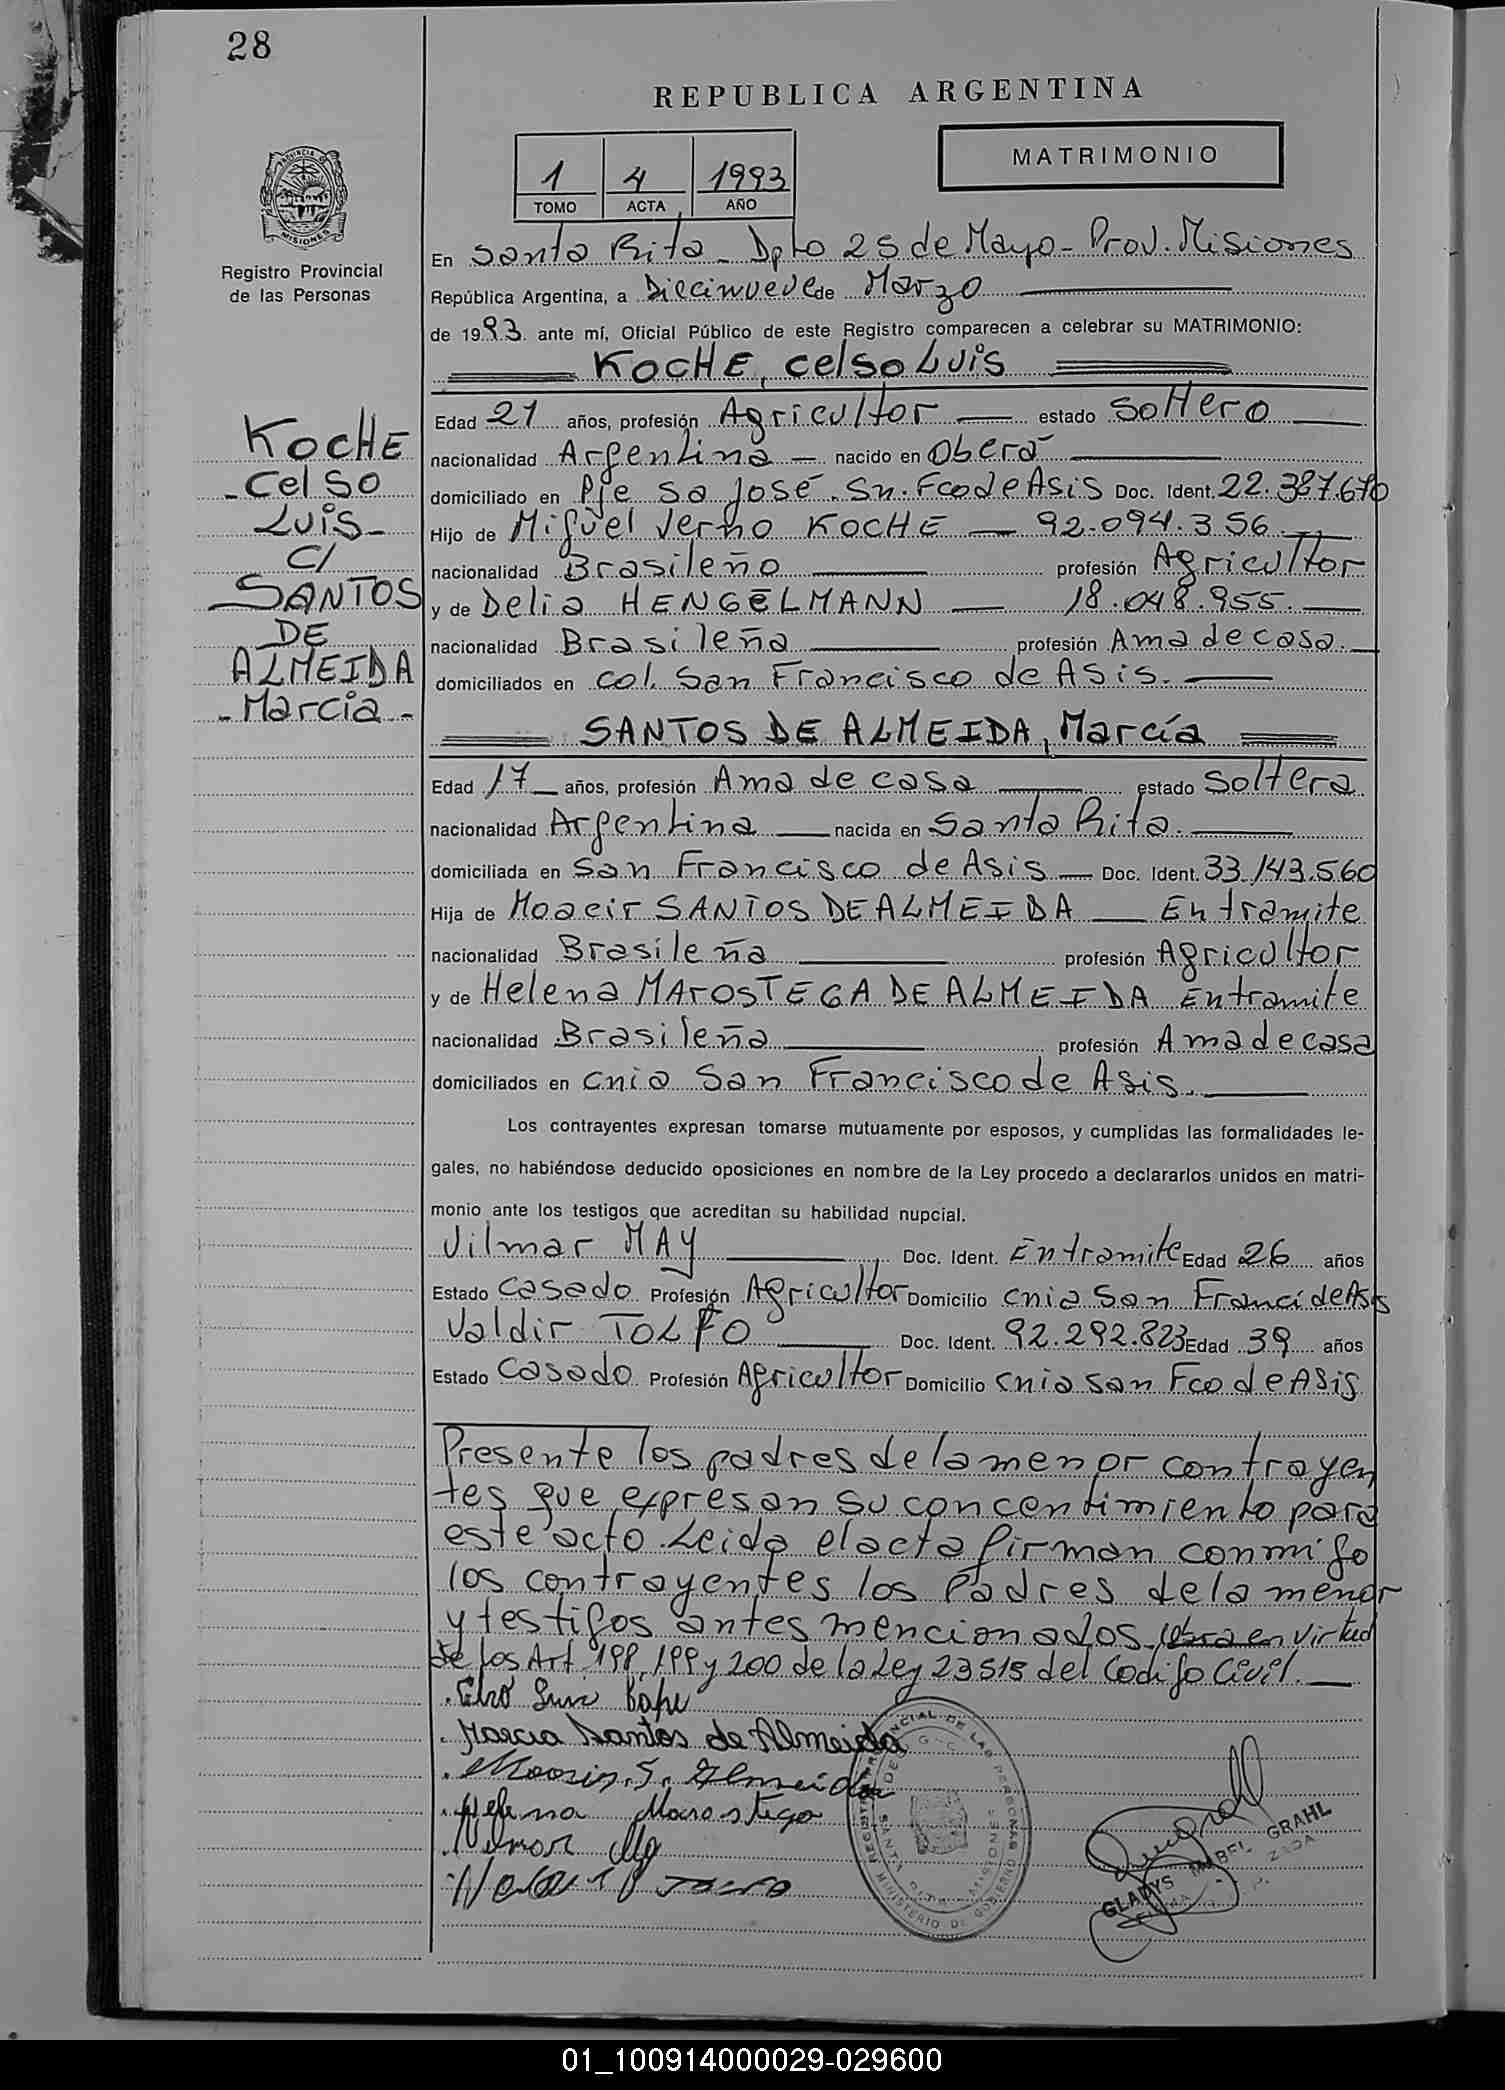 28
REPUBLICA ARGENTINA
MATRIMONIO
1 4 1993
TOMO ACTA AÑO
PROVINCIA DE MISIONES
Registro Provincial
de las Personas
En Santa Rita - Dpto 25 de Mayo - Prov. Misiones
República Argentina, a Diecinueve de Marzo
de 1993 ante mí, Oficial Público de este Registro comparecen a celebrar su MATRIMONIO:
KOCHE, Celso Luis
Edad 21 años, profesión Agricultor estado Soltero
nacionalidad Argentina nacido en Oberá
domiciliado en Pje Sa José. Sn. Fco de Asis Doc. Ident. 22.387.670
Hijo de Miguel Verno KOCHE 92.094.356
nacionalidad Brasileño profesión Agricultor
y de Delia HENGELMANN 18.048.955
nacionalidad Brasileña profesión Ama de casa.
domiciliados en col. San Francisco de Asis.
KOCHE
- Celso
Luis -
C/
SANTOS
DE
ALMEIDA
- Marcia -
SANTOS DE ALMEIDA, Marcía
Edad 17 años, profesión Ama de casa estado Soltera
nacionalidad Argentina nacida en Santa Rita.
domiciliada en San Francisco de Asis Doc. Ident. 33.143.560
Hija de Moacir SANTOS DE ALMEIDA En tramite
nacionalidad Brasileña profesión Agricultor
y de Helena MAROSTEGA DE ALMEIDA En tramite
nacionalidad Brasileña profesión Ama de casa
domiciliados en cnia San Francisco de Asis.
Los contrayentes expresan tomarse mutuamente por esposos, y cumplidas las formalidades le-
gales, no habiéndose deducido oposiciones en nombre de la Ley procedo a declararlos unidos en matri-
monio ante los testigos que acreditan su habilidad nupcial.
Vilmar MAY Doc. Ident. En tramite Edad 26 años
Estado Casado Profesión Agricultor Domicilio cnia San Franci de Asis
Valdir TOLFO Doc. Ident. 92.292.823 Edad 39 años
Estado Casado Profesión Agricultor Domicilio cnia San Fco de Asis
Presente los padres de la menor contrayen
tes que expresan su concentimiento para
este acto. Leida el acta firman conmigo
los contrayentes los Padres de la menor
y testigos antes mencionados. en virtud
de los Art. 198, 199 y 200 de la Ley 23515 del Codigo Civil.
Marcia Santos de Almeida
S. Almeida
Helena Marostega
GLADYS MABEL GRAHL
REGISTRO PROVINCIAL DE LAS PERSONAS
SANTA RITA - MISIONES
MINISTERIO DE GOBIERNO
01_100914000029-029600